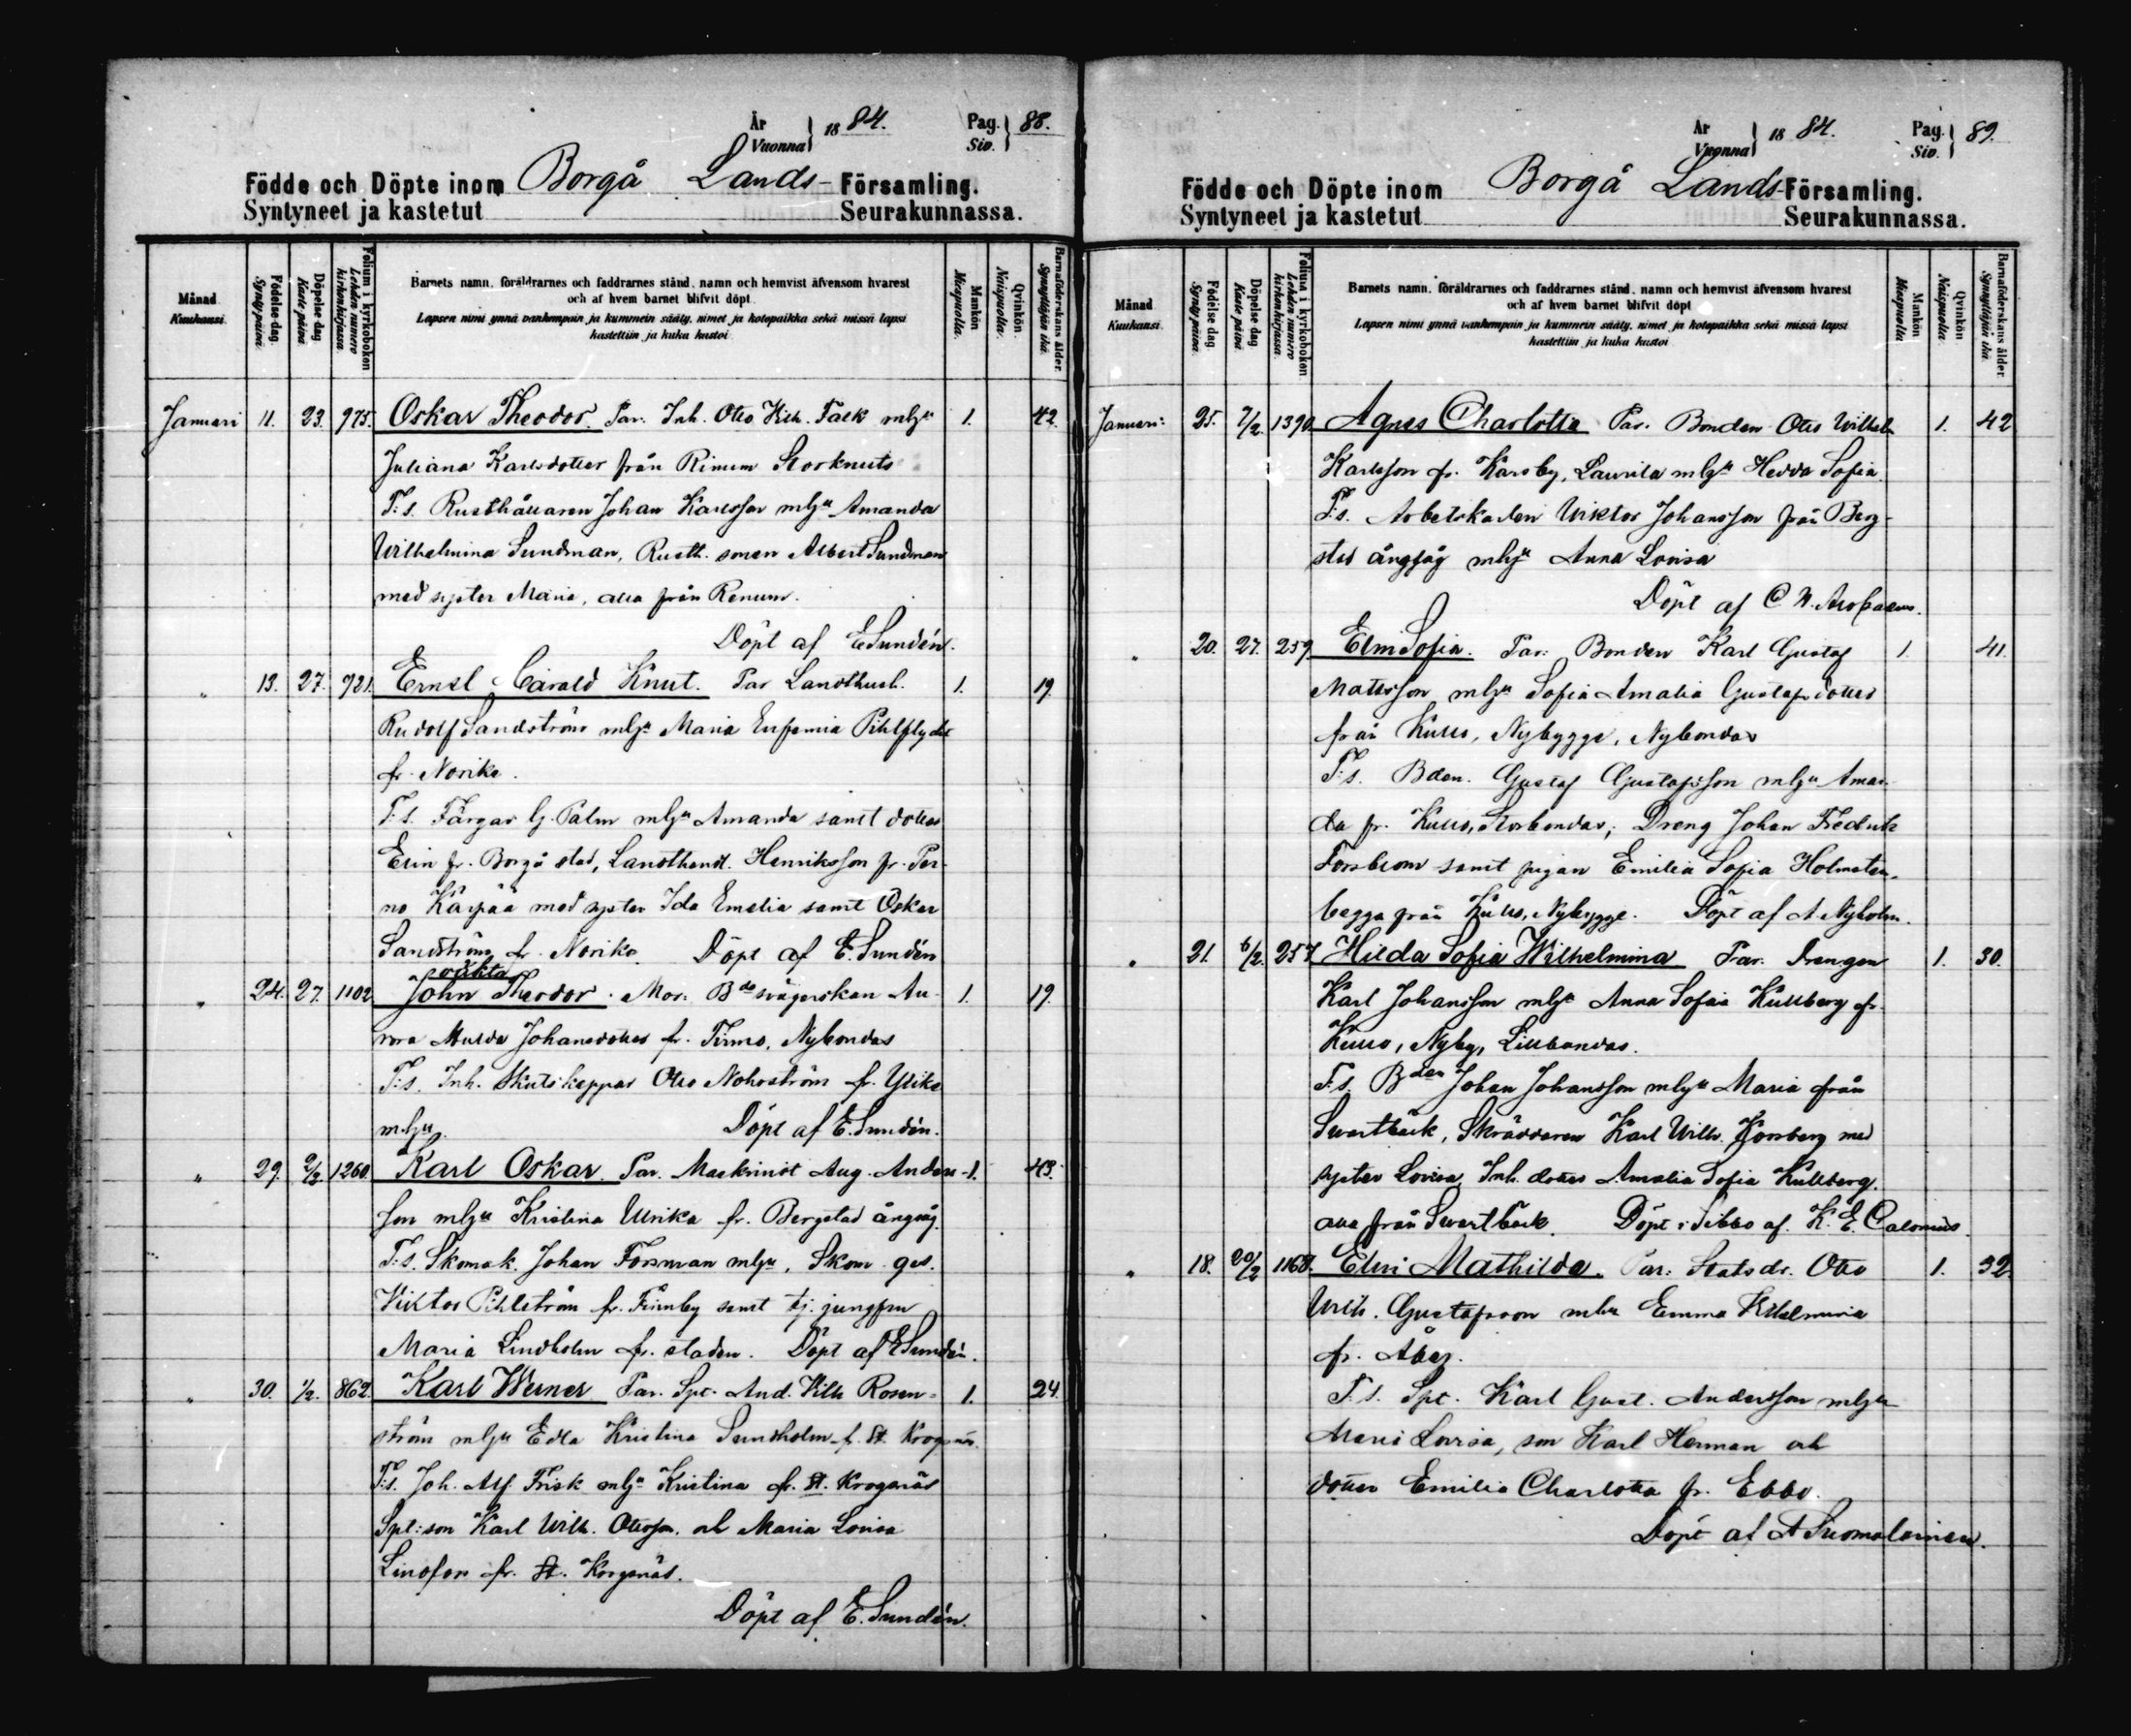 År
Vuonna
1884.
Pag.
Siv.
88.
Födde och Döpte inom Borgå Lands- Församling.
Syntyneet ja kastetut Seurakunnassa.
Månad
Kuukausi.
Födelse dag.
Synty päivä.
Döpelse dag
Kaste päivä.
Folium i kyrkoboken
Lehden numero kirkonkirjassa.
Barnets namn, föräldrarnes och faddrarnes stånd, namn och hemvist äfvensom hvarest
och af hvem barnet blifvit döpt.
Lapsen nimi ynnä vanhempain ja kummein sääty, nimet ja kotopaikka sekä missä lapsi
kastettiin ja kuka kastoi
Mankön
Miespuolta.
Qvinkön.
Naispuolta.
Barnaföderskans ålder.
Synnyttäjän ikä.
Januari 11. 23. 975. Oskar Theodor. Par. Inh. Otto Wilh. Falk mlgu 1. 42.
Juliana Karlsdotter från Rinum Storknuts
F:s. Rusthållaren Johan Karlsson mhu Amanda
Wilhelmina Sundman, Rusth. sonen Albert Sundman
med syster Maria, alla från Renum.
Döpt af E Sundén.
" 13. 27. 921. Ernst Harald Knut. Par Landthush. 1. 19.
Rudolf Sandström mhu Maria Eufemia Pihlflyckt
fr. Norike.
F:s. Färgar G. Palm mhu Amanda samt dotter
Elin fr. Borgå stad, Landthandl. Henriksson fr. Per-
no Kärpää med syster Ida Emelia samt Oskar
Sandström fr. Norike. Döpt af E. Sundén
oäkta
" 24. 27. 1102 John Theodor. Mor. Bde svägerskan Au- 1. 19.
rora Hulda Johansdotter fr. Tirmo, Nybondas
F:s. Inh. Skutskeppar Otto Nohrström fr. Ylike
mhu. Döpt af E. Sundén.
" 29. 2/2. 1260. Karl Oskar. Par. Maskinist Aug. Anders- 1. 43.
son mhu Kristina Ulrika fr. Bergstad ångsåg.
F:s. Skomak. Johan Forsman mhu, Skom. ges.
Viktor Pihlström fr. Finnby samt tj. jungfru
Maria Lindholm fr. staden. Döpt af E Sundén.
" 30. 1/2. 862. Karl Werner Par. Spt. And. Wilh Rosen- 1. 24.
ström mhu Edla Kristina Sundholm f. St. Krogsnäs.
F:s. Joh. Alf. Frisk mhu Kristina fr. St. Krogsnäs
Spt: son Karl Wilh. Ottosson, och Maria Lovisa
fr. St. Krogsnäs.
Döpt af E. Sundén.
År
Vuonna
1884.
Pag.
Siv.
89.
Födde och Döpte inom Borgå Lands- Församling.
Syntyneet ja kastetut Seurakunnassa.
Månad
Kuukausi.
Födelse dag
Synty päivä.
Döpelse dag
Kaste päivä.
Folium i kyrkoboken
Lehden numero kirkonkirjassa.
Barnets namn, föräldrarnes och faddrarnes stånd, namn och hemvist äfvensom hvarest
och af hvem barnet blifvit döpt
Lapsen nimi ynnä vanhempain ja kummein sääty, nimet ja kotopaikka sekä missä lapsi
kastettiin ja kuka kastoi
Mankön
Miespuolta
Qvinkön
Naispuolta.
Barnaföderskans ålder.
Synnyttäjän ikä.
Januari: 25. 7/2. 1390. Agnes Charlotta Par. Bonden Otto Wilhelm 1. 42
Karlsson fr. Karsby, Laurila mhu Hedda Sofia.
F:s. Arbetskarlen Wiktor Johansson från Berg-
stad ångsåg mhu Anna Lovisa
Döpt af C. W.
" 20. 27. 259 Elin Sofia. Par: Bonden Karl Gustaf 1. 41.
Mattsson mhu Sofia Amalia Gustafsdotter
från Kullo, Nybygge, Nybondas
F:s. Bden. Gustaf Gustafsson mhu Aman-
da fr. Kullo, Storbondas; Dreng Johan Fredrik
Forsblom samt pigan Emilia Sofia Holmsten,
begge från Kullo, Nybygge. Döpt af A. Nyholm.
" 21. 6/2. 257 Hilda Sofia Wilhelmina Par. Drengen 1. 30.
Karl Johansson mhu Anna Sofia Kullberg fr.
Kullo, Nyby, Lillbondas.
F:s. Bden Johan Johansson mhu Maria från
Svartbäck, Skräddaren Karl Wilh. Forsberg med
syster Lovisa, Inh. dotter Amalia Sofia Kullberg,
alla från Svartbäck. Döpt i Sibbo af. K. E. Calonius.
" 18. 20/2 1168. Elin Mathilda. Par: Statsdr. Otto 1. 32.
Wilh. Gustafsson mhu Emma Wilhelmina
fr. Åby.
F:s. Spt. Karl Gust. Andersson mhu
Maria Lovisa, son Karl Herman och
dotter Emilia Charlotta fr. Ebbo.
Döpt af A Suomalainen.